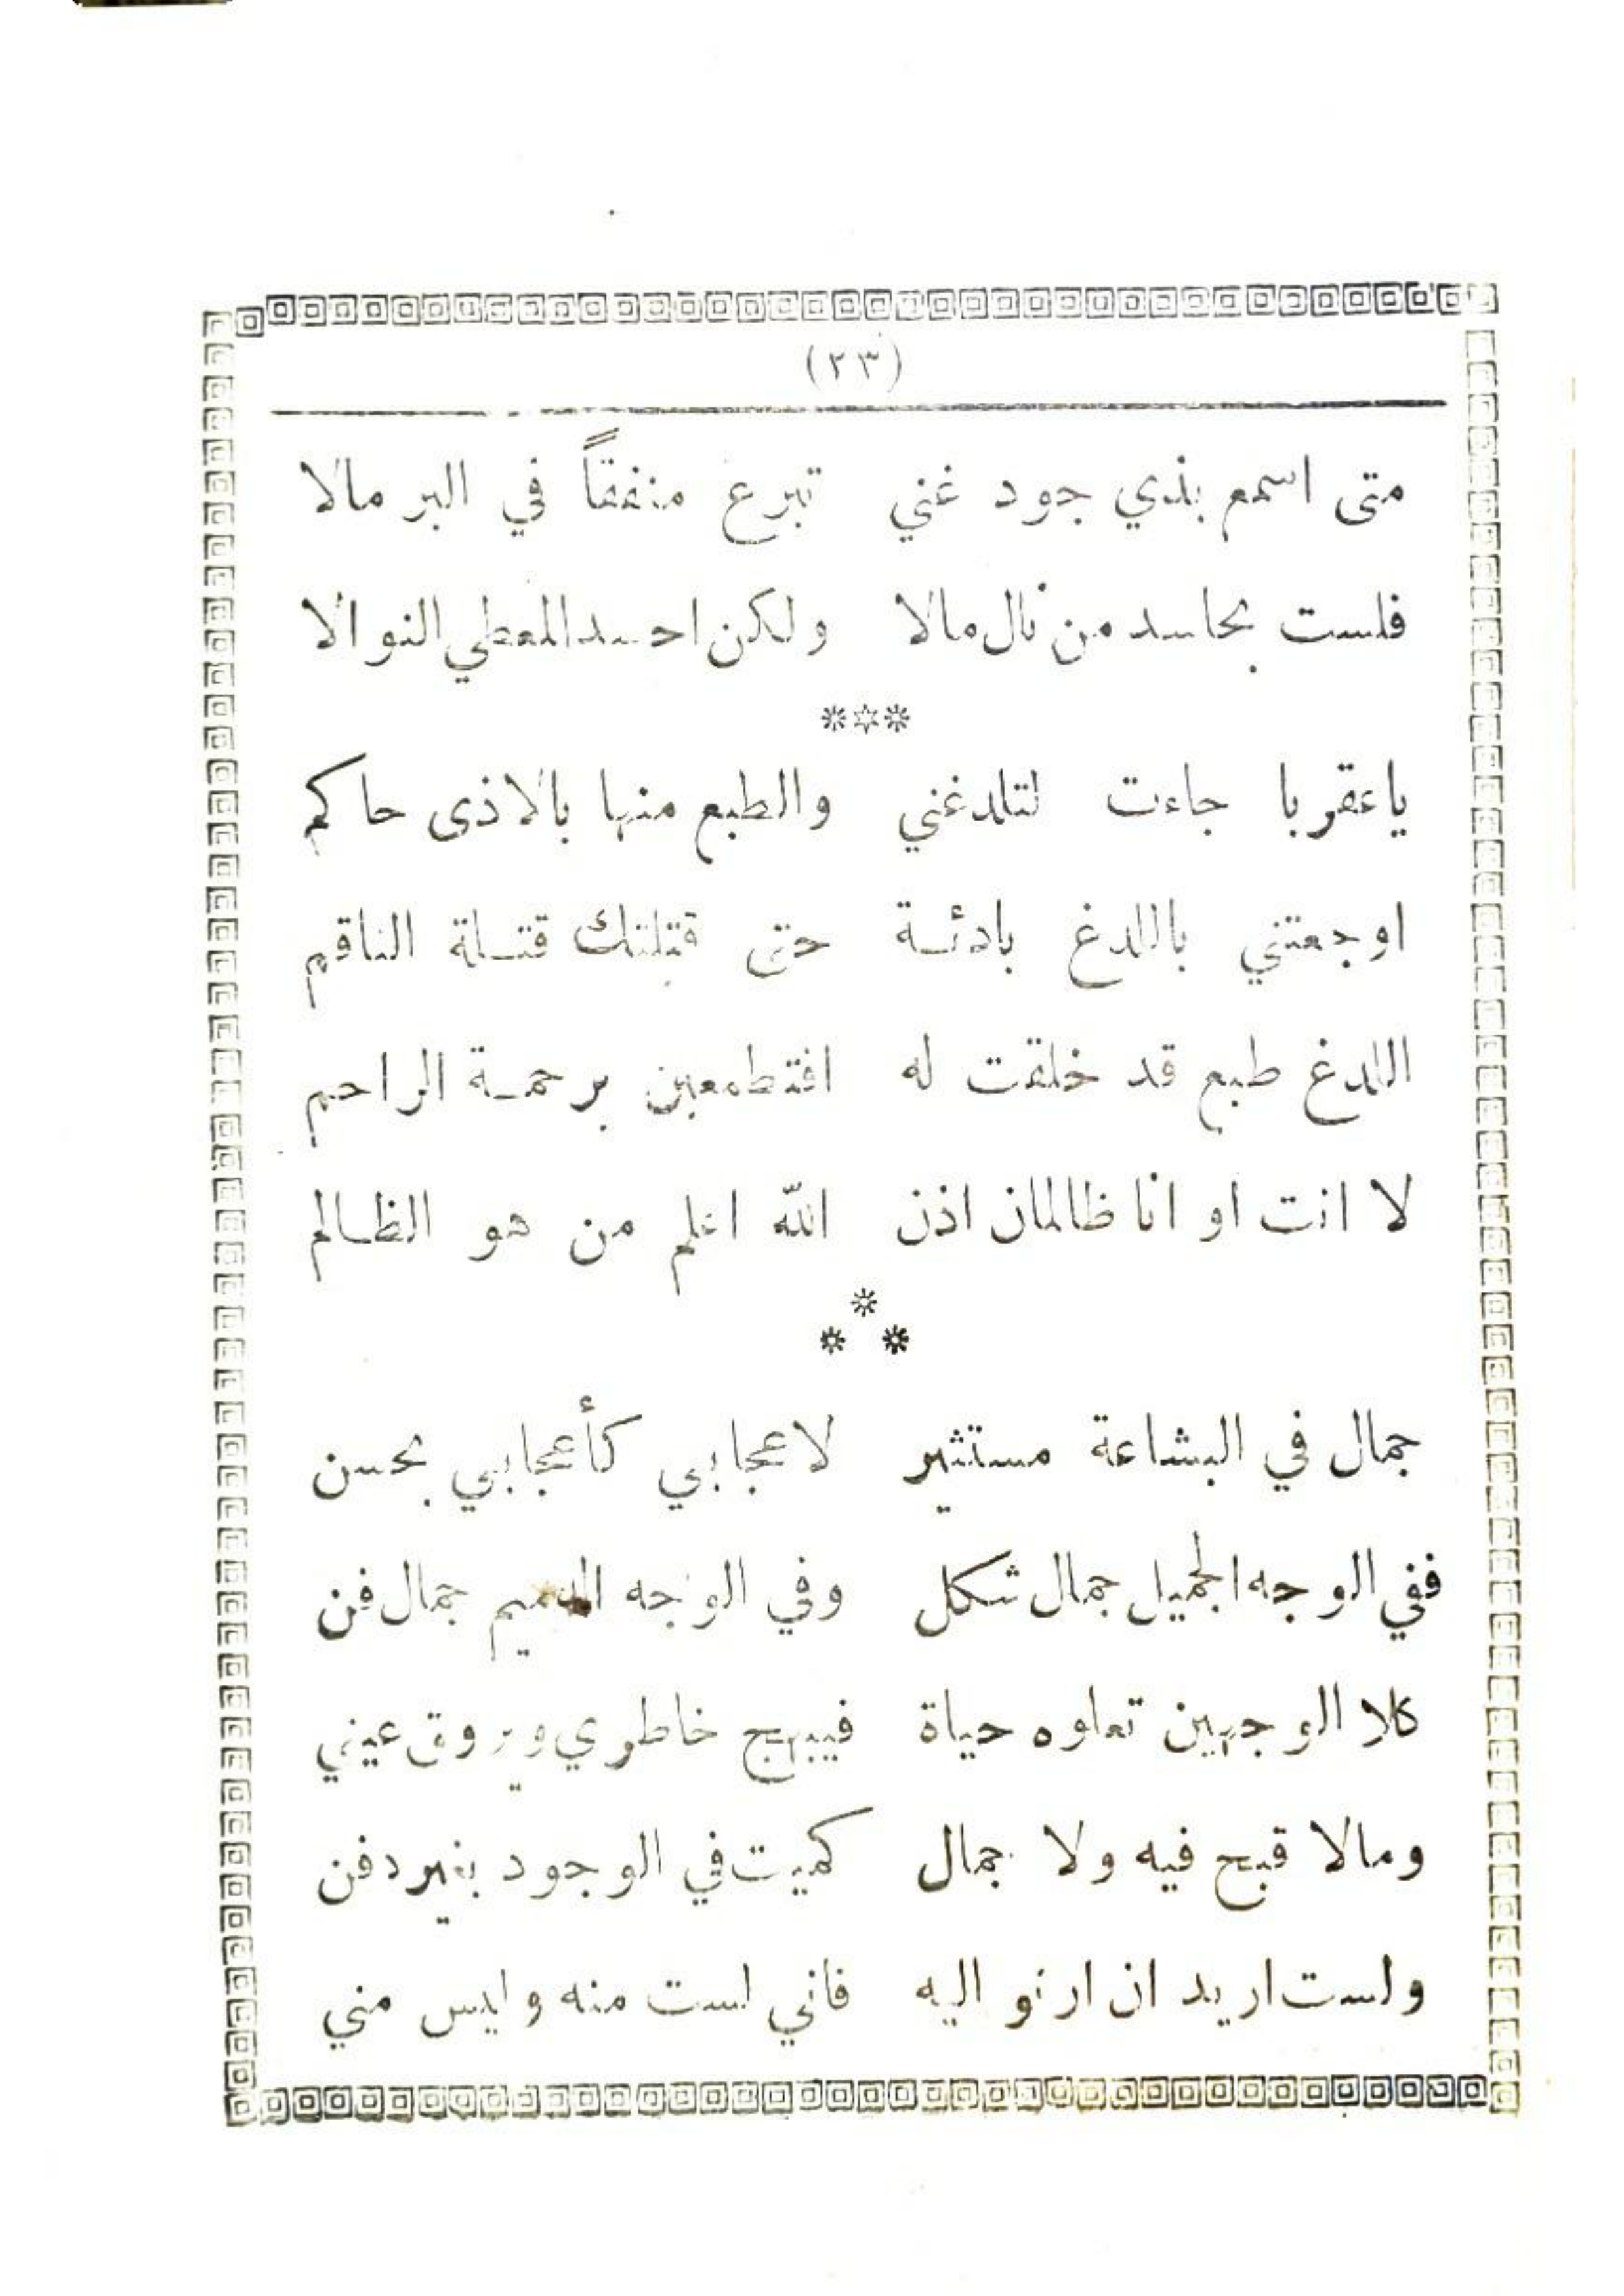 (٢٣)
متى اسمع بذي جود غني تبرع منفقاً في البر مالا
فلست بحاسد من نال مالا ولكن احسد المعطي النوالا
***
ياعقربا جاءت لتلدغني والطبع منها بالاذى حاكم
اوجعتني باللدغ بادئة حتى قتلتك قتلة الناقم
اللدغ طبع قد خلقت له افتطمعين برحمة الراحم
لا انت او انا ظالمان اذن الله اعلم من هو الظالم
*
* *
جمال في البشاعة مستثير لاعجابي كأعجابي بحسن
ففي الوجه الجميل جمال شكل وفي الوجه الدميم جمال فن
كلا الوجهين تعلوه حياة فيبهج خاطري ويروق عيني
ومالا قبح فيه ولا جمال كميت في الوجود بغير دفن
ولست اريد ان ارنو اليه فاني لست منه وليس مني